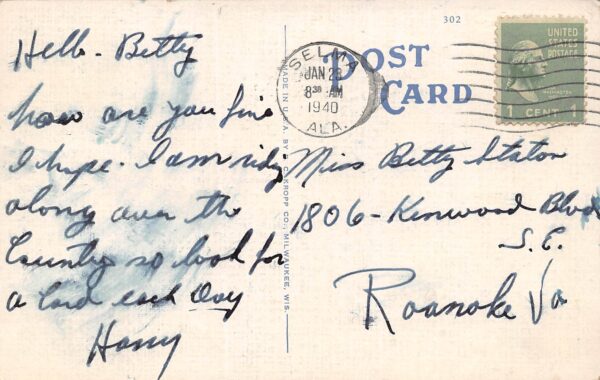 Hello - Betty
how are you fine
I hope. I am ridg
along over the
Country so look for
a Card each Day
Harry
302
POST
CARD
SELMA
JAN 23
8 30 AM
1940
ALA.
UNITED
STATES
POSTAGE
WASHINGTON
1 CENT 1
MADE IN U.S.A. BY E. C. KROPP CO., MILWAUKEE, WIS.
Miss Betty Staton
1806 - Kenwood Blvd
S.E.
Roanoke Va